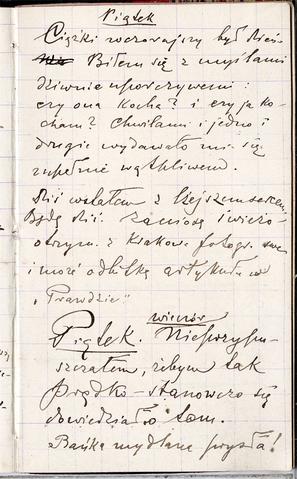 Piątek
Ciężki wczorajszy był dzień
Biłem się z myślami
dziwnie uporczywemi:
czy ona kocha? i czy ja ko-
cham? Chwilami i jedno i
drugie wydawało mi się
zupełnie wątpliwem.
Dziś wstałem z lżejszem sercem.
Będę dziś
otrzym. z Krakowa fotogr. swe
i może odbitkę artykułu w
„Prawdzie”
Piątek. wieczór Nieprzypu-
szczałem, żebym tak
prędko – stanowczo się
dowiedział o tem.
Bańka mydlana prysła!